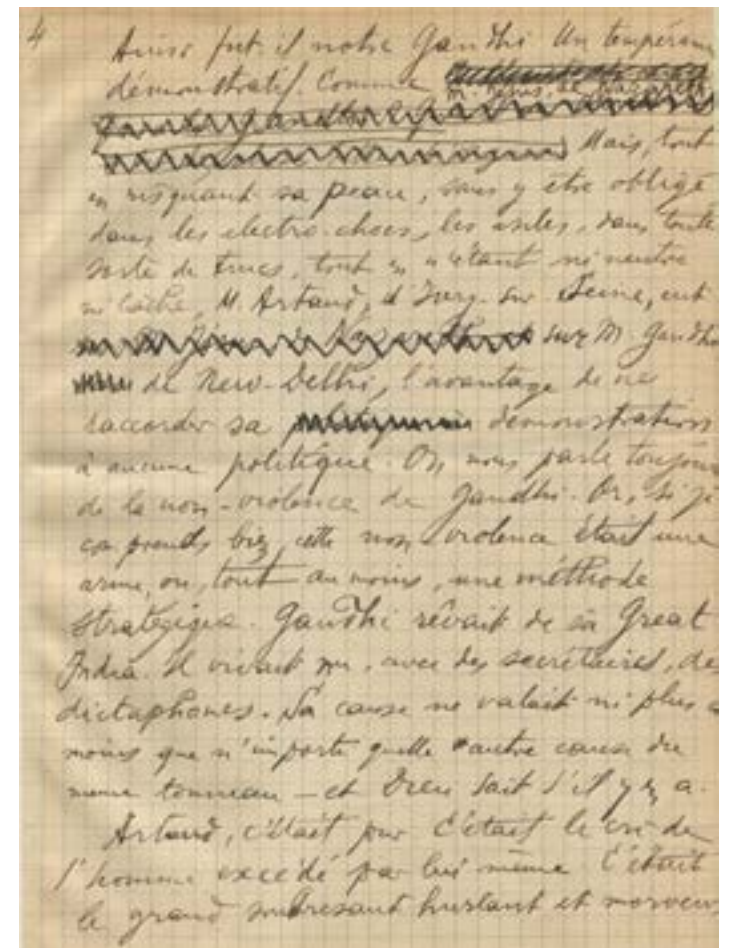 4
Ainsi fut-il notre Gandhi. Un tempérame
démonstratif. Comme
Mais, tout
en risquant sa peau, sans y être obligé,
dans les electro-chocs, les asiles, dans toute
sorte de trucs, tout en n'étant ni neutre
ni lâche, M. Artaud, d'Ivry-sur-Seine, eut
sur M. Gandhi
de New-Delhi, l'avantage de ne
raccorder sa démonstration
à aucune politique. On nous parle toujours
de la non-violence de Gandhi. Or, si je
comprends bien, cette non-violence était une
arme, ou, tout au moins, une méthode
stratégique. Gandhi rêvait de sa Great
India. Il vivait nu, avec des secrétaires, des
dictaphones. Sa cause ne valait ni plus
moins que n'importe quelle autre cause du
même tonneau — et Dieu sait s'il y en a.
Artaud, c'était pur. C'était le cri de
l'homme excédé par lui-même. C'était
le grand soubresaut hurlant et morveux